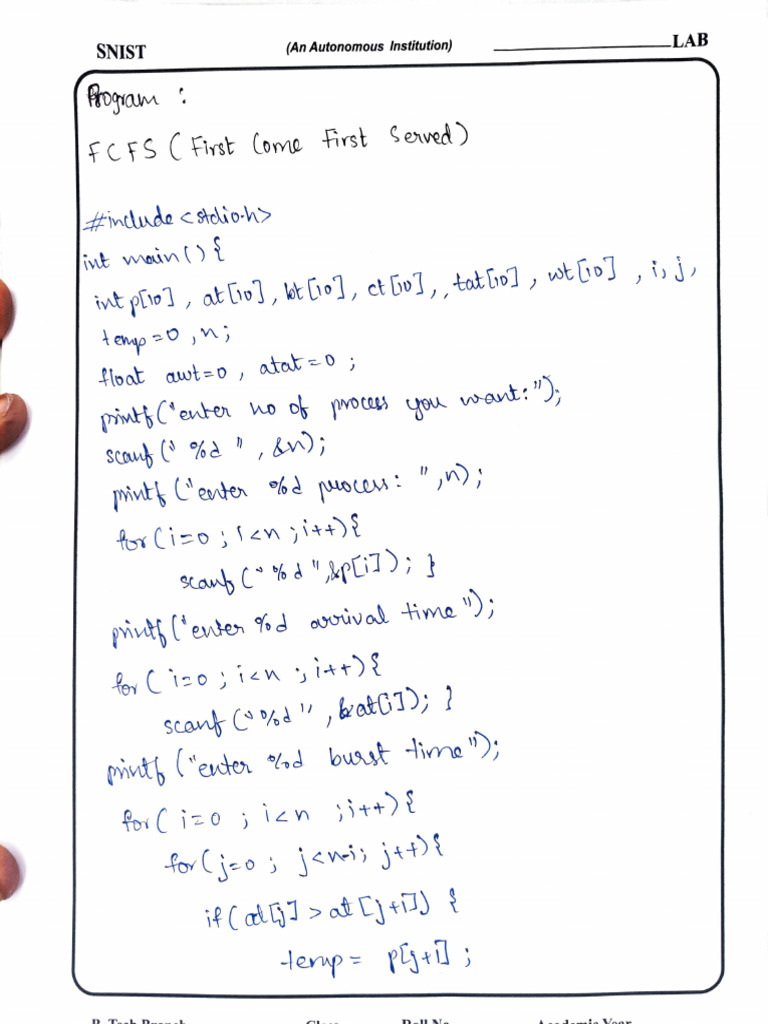 SNIST (An Autonomous Institution) LAB
Program :
FCFS (First Come First Served)
#include <stdio.h>
int main() {
int p[10], at[10], bt[10], ct[10],, tat[10], wt[10], i, j,
temp=0, n;
float awt=0, atat=0;
printf("enter no of process you want:");
scanf("%d", &n);
printf("enter %d process: ",n);
for(i=0; i<n; i++){
scanf("%d",&p[i]); }
printf("enter %d arrival time");
for(i=0; i<n; i++){
scanf("%d", &at[i]); }
printf("enter %d burst time");
for(i=0; i<n; i++){
for(j=0; j<n-i; j++){
if(at[j] > at[j+1]) {
temp = p[j+1];
B. Tech Branch Class Roll No Academic Year